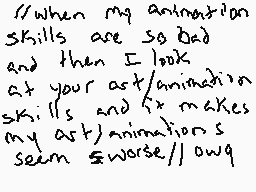 //when my animation
skills are so bad
and then I look
at your art/animation
skills and it makes
my art/animations
seem worse// owq